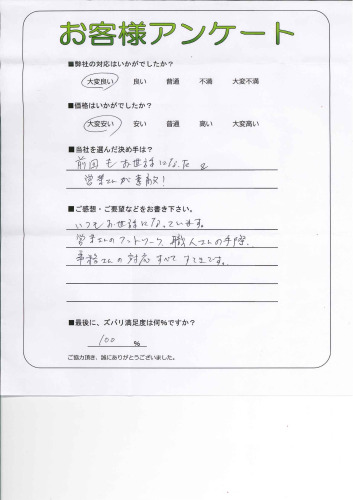 お客様アンケート
■弊社の対応はいかがでしたか？
大変良い 良い 普通 不満 大変不満
■価格はいかがでしたか？
大変安い 安い 普通 高い 大変高い
■当社を選んだ決め手は？
前回もお世話になった &
営業さんが素敵!
■ご感想・ご要望などをお書き下さい。
いつもお世話になっています。
営業さんのフットワーク、職人さんの手際、
事務さんの対応 すべて すてきです。
■最後に、ズバリ満足度は何％ですか？
100 ％
ご協力頂き、誠にありがとうございました。